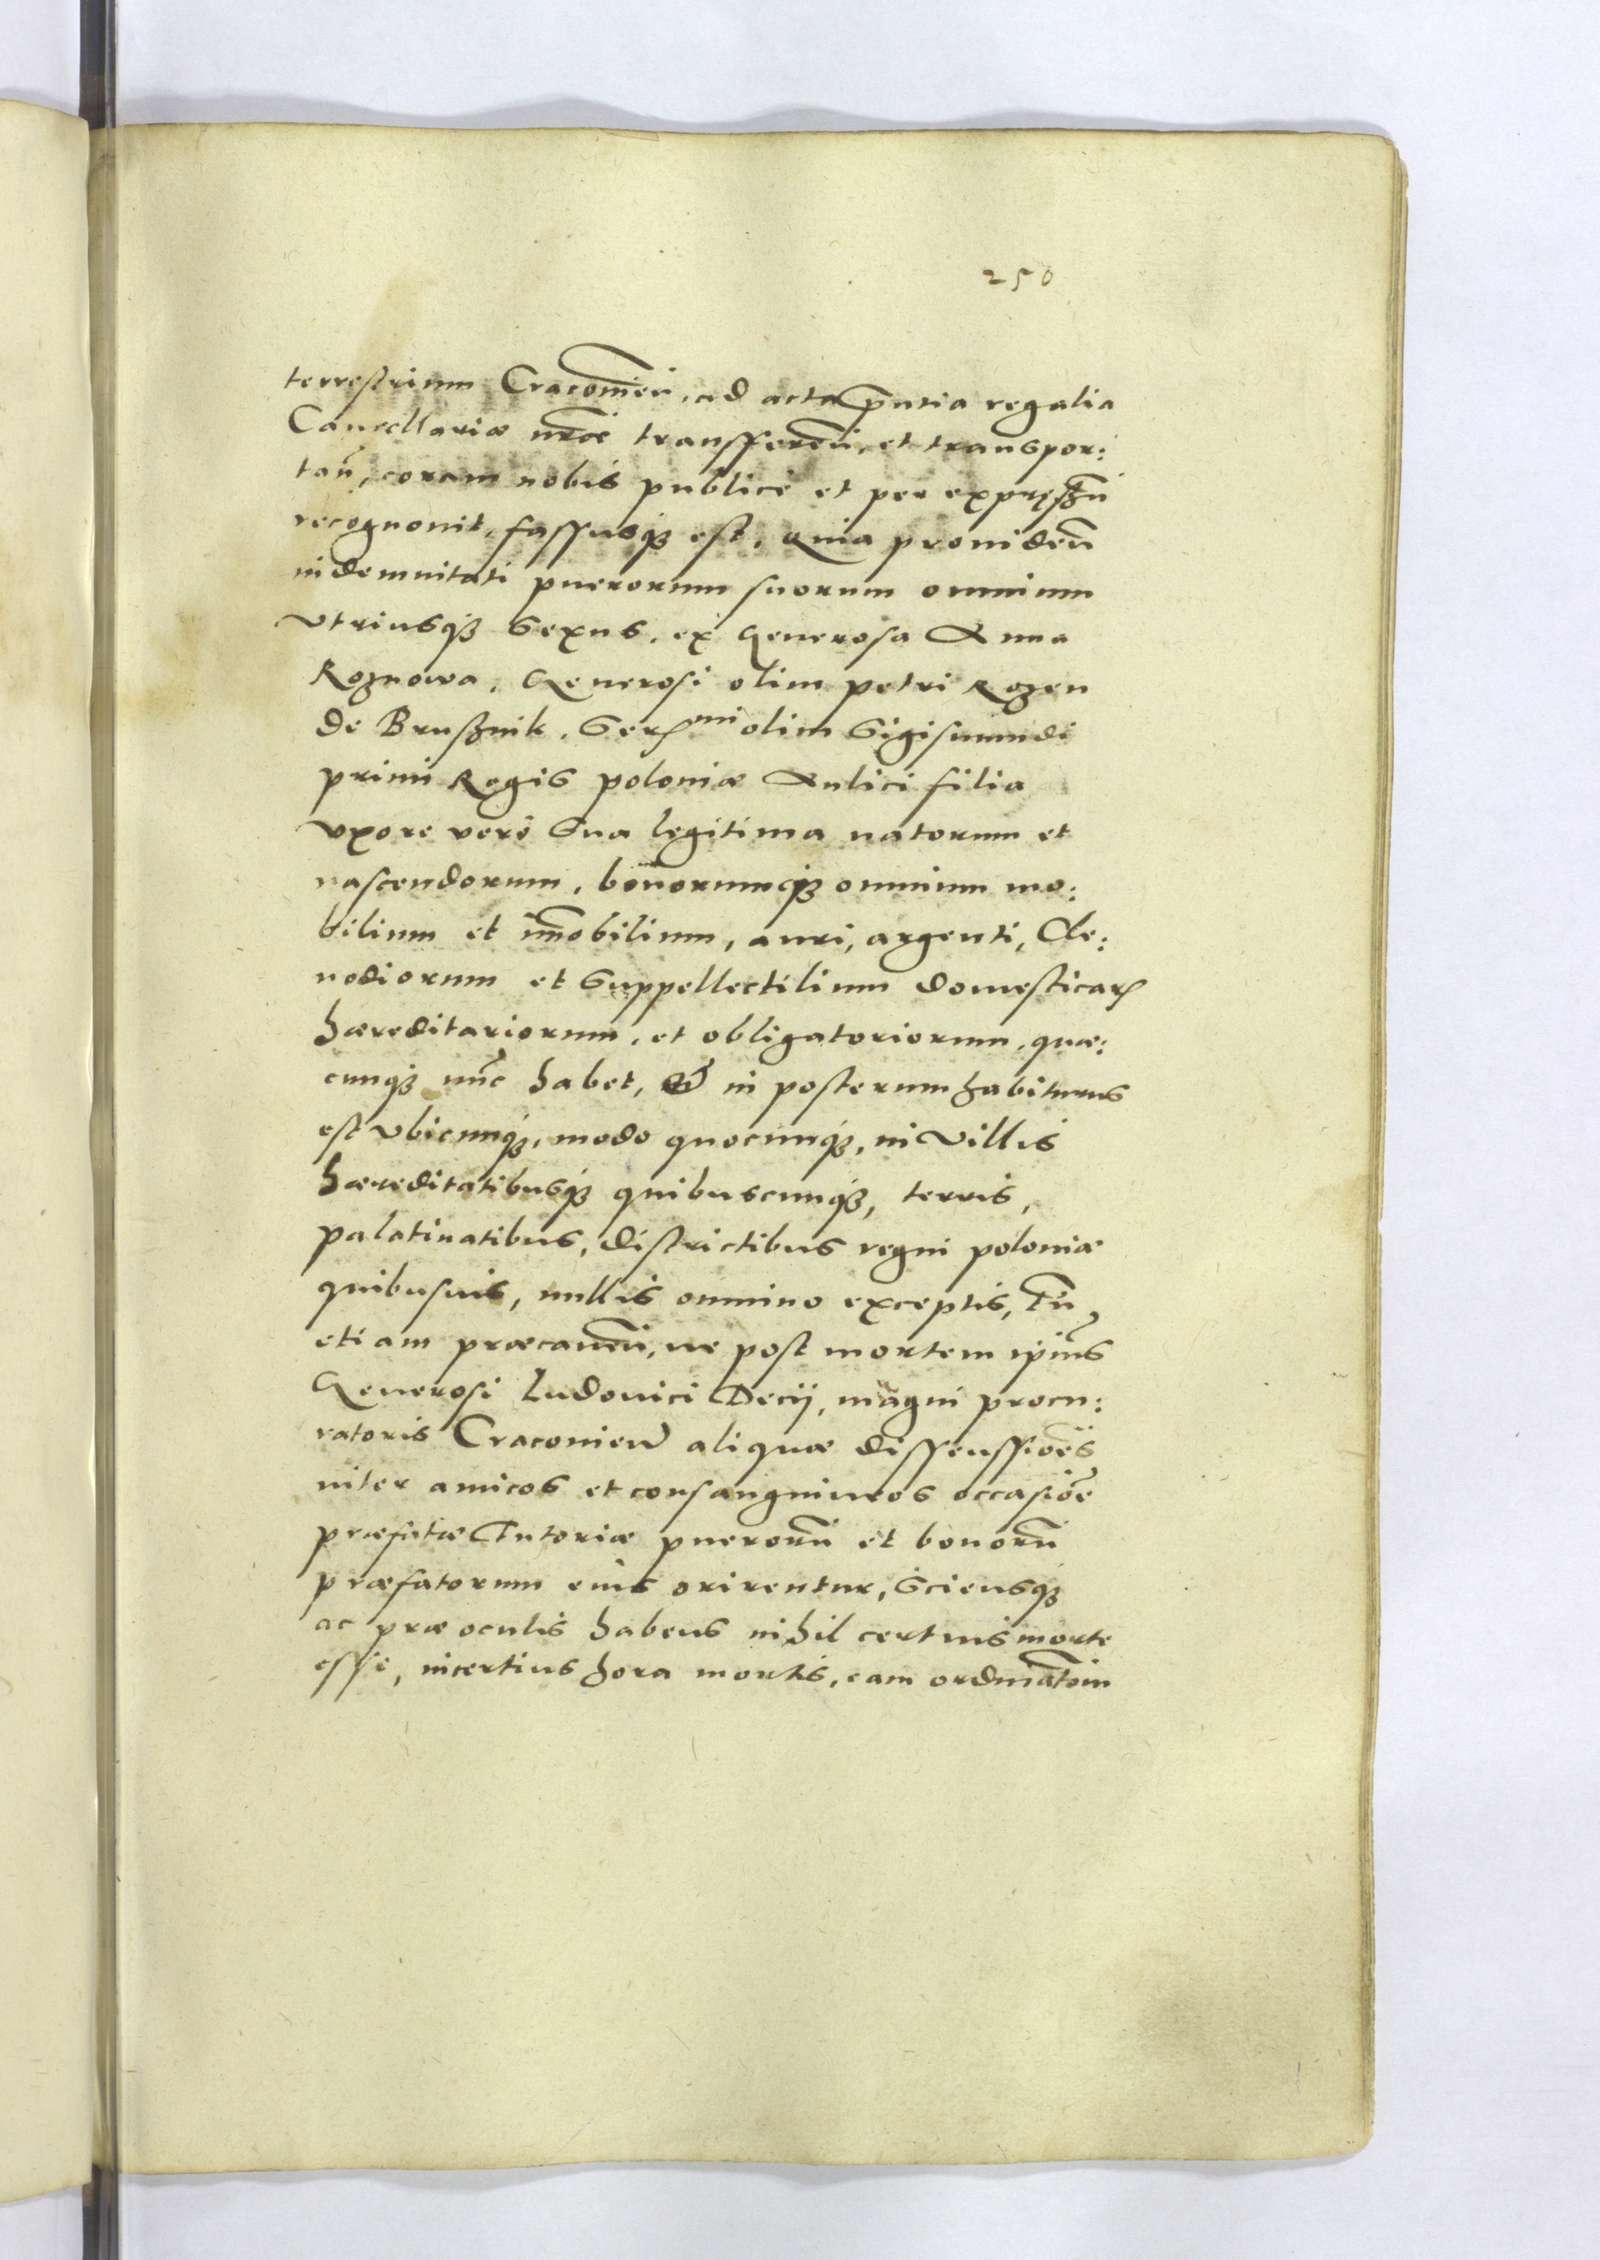 250
terrestrium Cracouień, ad acta p̃ntia regalia
Cancellariæ nr̃æ transfferen̄, et transpor:
tan̄, coram nobis publice et per expressũ
recognouit, fassusq3 est, Quia prouiden̄
indemnitati puerorum suorum omnium
vtriusq3 sexus, ex Generosa Anna
Roznowa, Generosi olim petri Rozen
de Brusznik, Ser^mi olim Sigismundi
primi Regis poloniæ Aulici filia
vxore vero sua legitima natorum et
nascendorum, bonorumq3 omnium mo:
bilium et im̃obilium, auri, argenti, Cle:
nodiorum et suppellectilium domesticar̃
hæreditariorum, et obligatoriorum, quæ:
cunq3 nũc habet, & in posterum habiturus
est vbicunq3, modo quocunq3, in villis
hæreditatibusq3 quibuscunq3, terris,
palatinatibus, districtibus regni poloniæ
quibusuis, nullis omnino exceptis, Tũ
etiam præcauen̄, ne post mortem ip̃ius
Generosi Ludouici Decij, magni procu:
ratoris Cracouien̄ aliquæ dissenssiões
inter amicos et consanguineos occasiõe
præfatæ Tutoriæ puerorũ et bonorũ
præfatorum eius orirentur, sciensq3
ac præ oculis habens nihil certius morte
esse, incertius hora mortis, eam ordinatõm